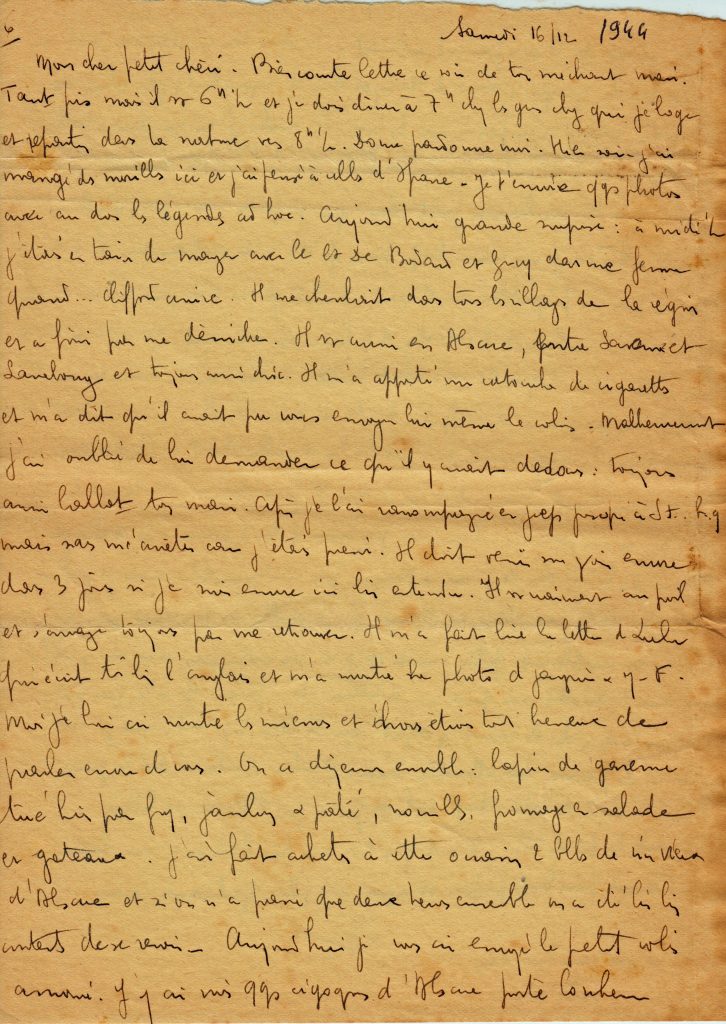 6
Samedi 16/12 1944
Mon cher petit chéri. Bien courte lettre ce soir de ton méchant mari.
Tant pis mais il est 6h ½ et je dois diner à 7h chez les gens chez qui je loge
et repartir dans la nature vers 8h ½. Donc pardonne moi. Hier soir j'ai
mangé des morilles ici et j'ai pensé à celles d' Je t'envoie qqs photos
avec au dos les légendes ad hoc. Aujourd'hui grande surprise : à midi ½
j'étais en train de manger avec le Lt De Bodard et Guy dans une ferme
quand... Clifford arrive. Il me cherchait dans tous les villages de la région
et a fini par me dénicher. Il est aussi en Alsace, entre et
et toujours aussi chic. Il m'a apporté une cartouche de cigarettes
et m'a dit qu'il avait pu vous envoyer lui même le colis. Malheureusement
j'ai oublié de lui demander ce qu'il y avait dedans : toujours
aussi ballot ton mari. Après je l'ai raccompagné en jeep jusqu'à St.
mais sans m'arrêter car j'étais pressé. Il doit venir me voir encore
dans 3 jours si je suis encore ici bien entendu. Il est vraiment au poil
et s'arrange toujours par me retrouver. Il m'a fait lire la lettre de Lulu
qui écrit très bien l'anglais et m'a montré la photo de & Y-F.
Moi je lui ai montré les miennes et étions tous heureux de
parler encore de vous. On a déjeuné ensemble : lapin de garenne
tué hier par Guy, jambon & pâté, nouilles, fromage salade
et gateaux. J'ai fait acheter à cette occasion 2 blles de vin vieux
d'Alsace et si on n'a passé que deux heures ensemble on a été bien
contents de se revoir - Aujourd'hui je vous ai envoyé le petit colis
annoncé. J'y ai mis qqs cigognes d'Alsace porte bonheur